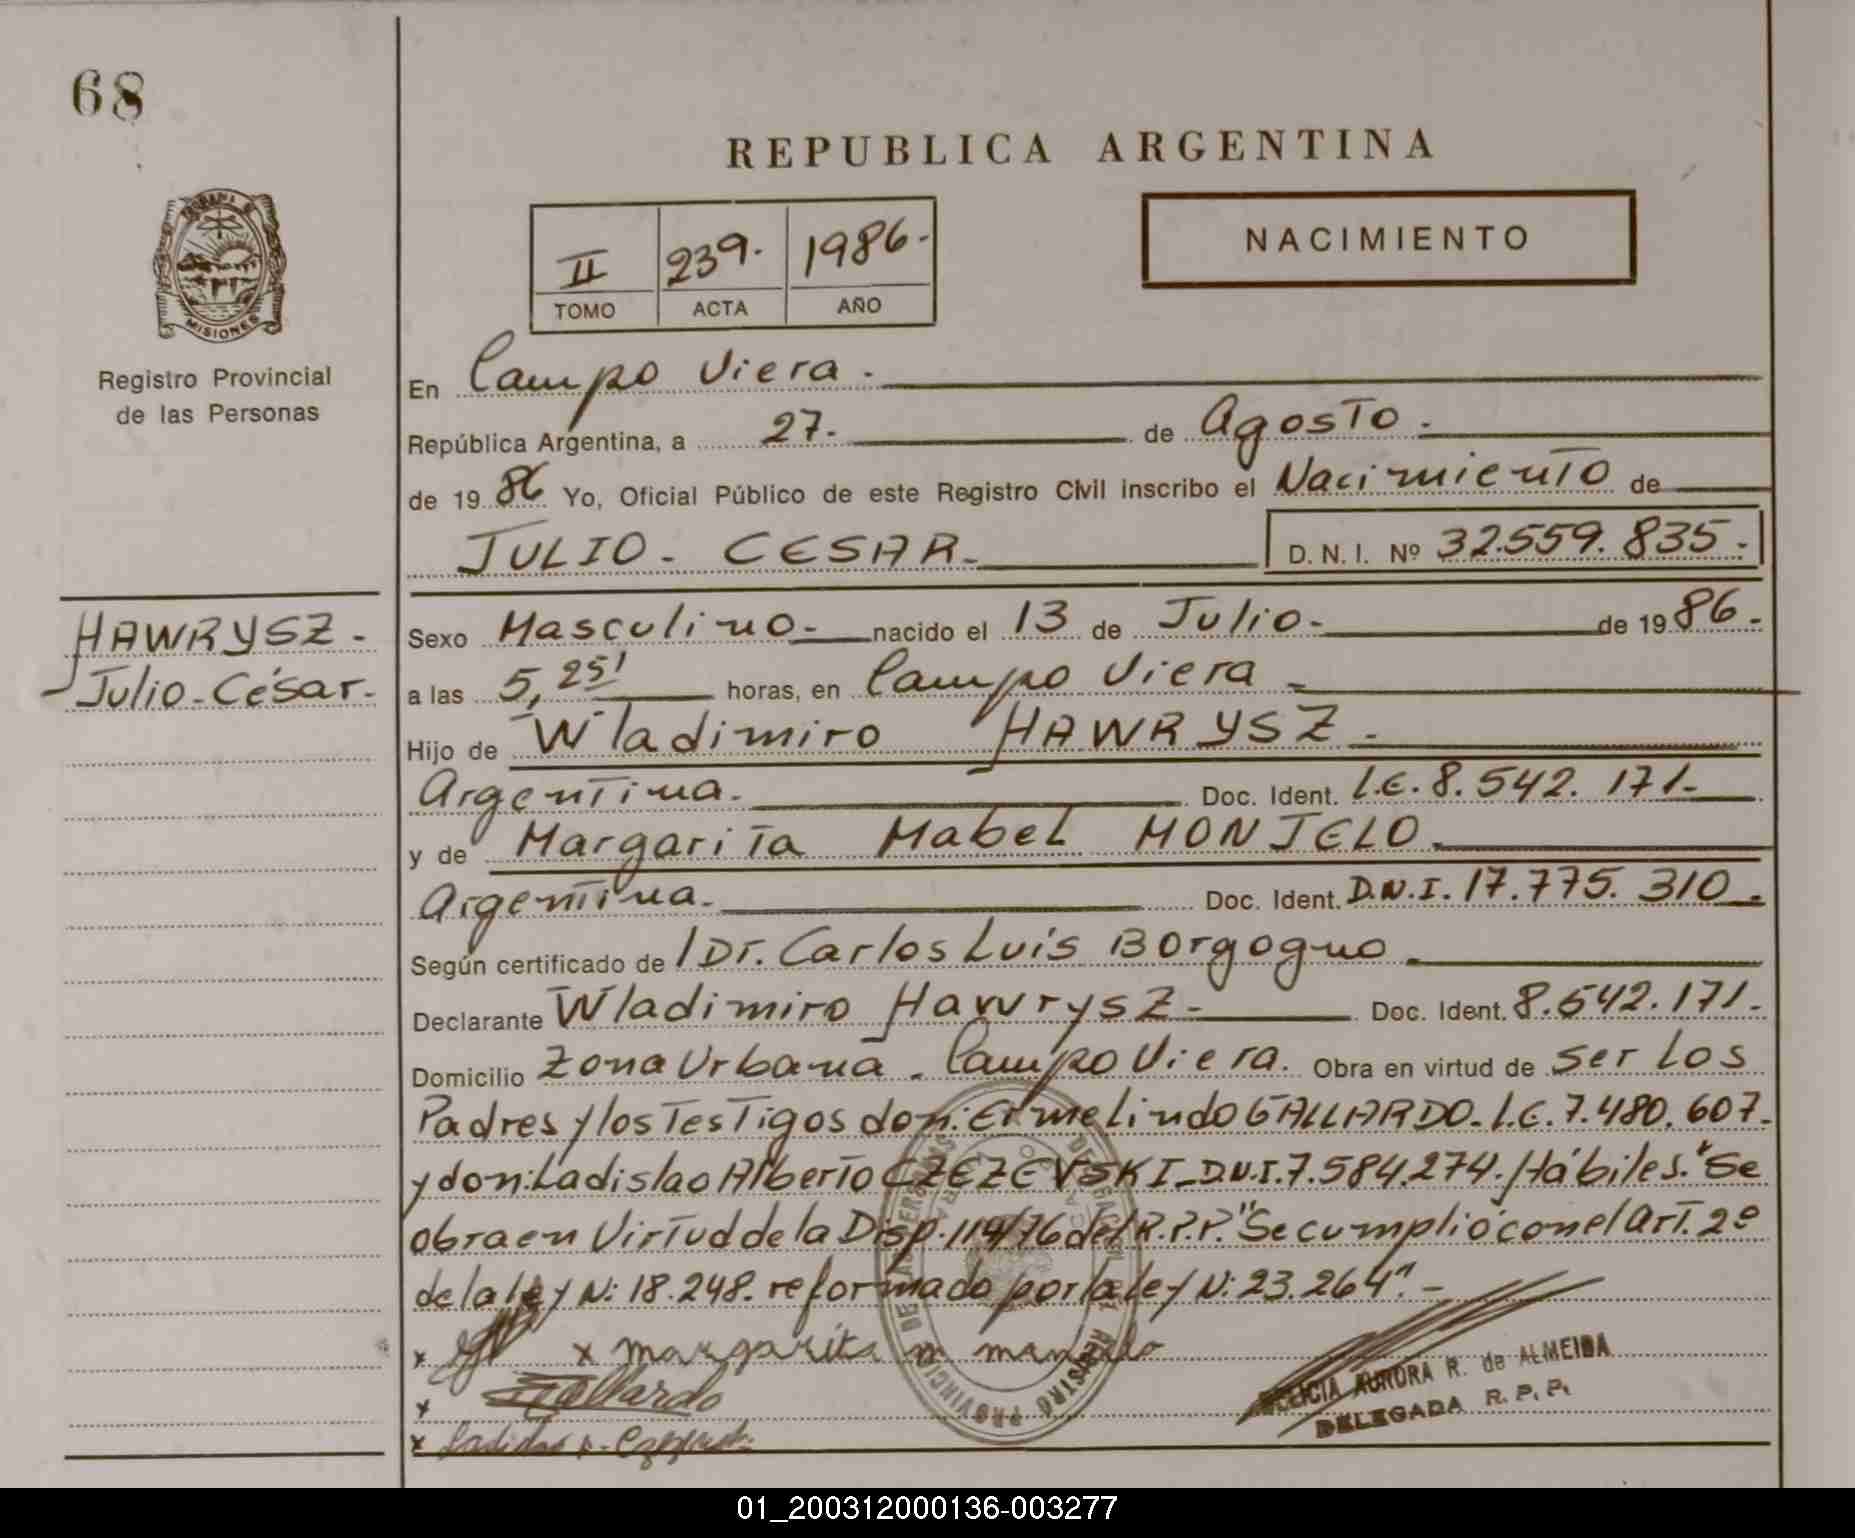 68
REPUBLICA ARGENTINA
II 239. 1986.-
TOMO ACTA AÑO
NACIMIENTO
MISIONES
Registro Provincial
de las Personas
En Campo Viera.
República Argentina, a 27. de Agosto.
de 19 86 Yo, Oficial Público de este Registro Civil inscribo el Nacimiento de
JULIO. CESAR. D. N. I. Nº 32.559.835.-
HAWRYSZ.
Julio-César.
Sexo Masculino.- nacido el 13 de Julio.- de 19 86.-
a las 5,25' horas, en Campo Viera
Hijo de Wladimiro HAWRYSZ.
Argentina. Doc. Ident. L.E. 8.542.171.-
y de Margarita Mabel MONJELO.
Argentina. Doc. Ident. D.N.I. 17.775.310.
Según certificado de / Dr. Carlos Luis Borgogno.
Declarante Wladimiro Hawrysz.- Doc. Ident. 8.542.171.-
Domicilio Zona Urbana. Campo Viera. Obra en virtud de ser los
Padres y los Testigos don: Ermelindo GALLARDO. L.E. 7.480.607.-
y don: Ladislao Alberto CZEZEVSKI_D.N.I. 7.584.274. Hábiles. "Se
obra en Virtud de la Disp. 114/76 del R.P.P." Se cumplió con el Art. 2º
de la ley N: 18.248. reformado por la ley N: 23.264".-
x x margarita m
x Gallardo
x
DELICIA AURORA R. de ALMEIDA
DELEGADA R. P. P.
01_200312000136-003277